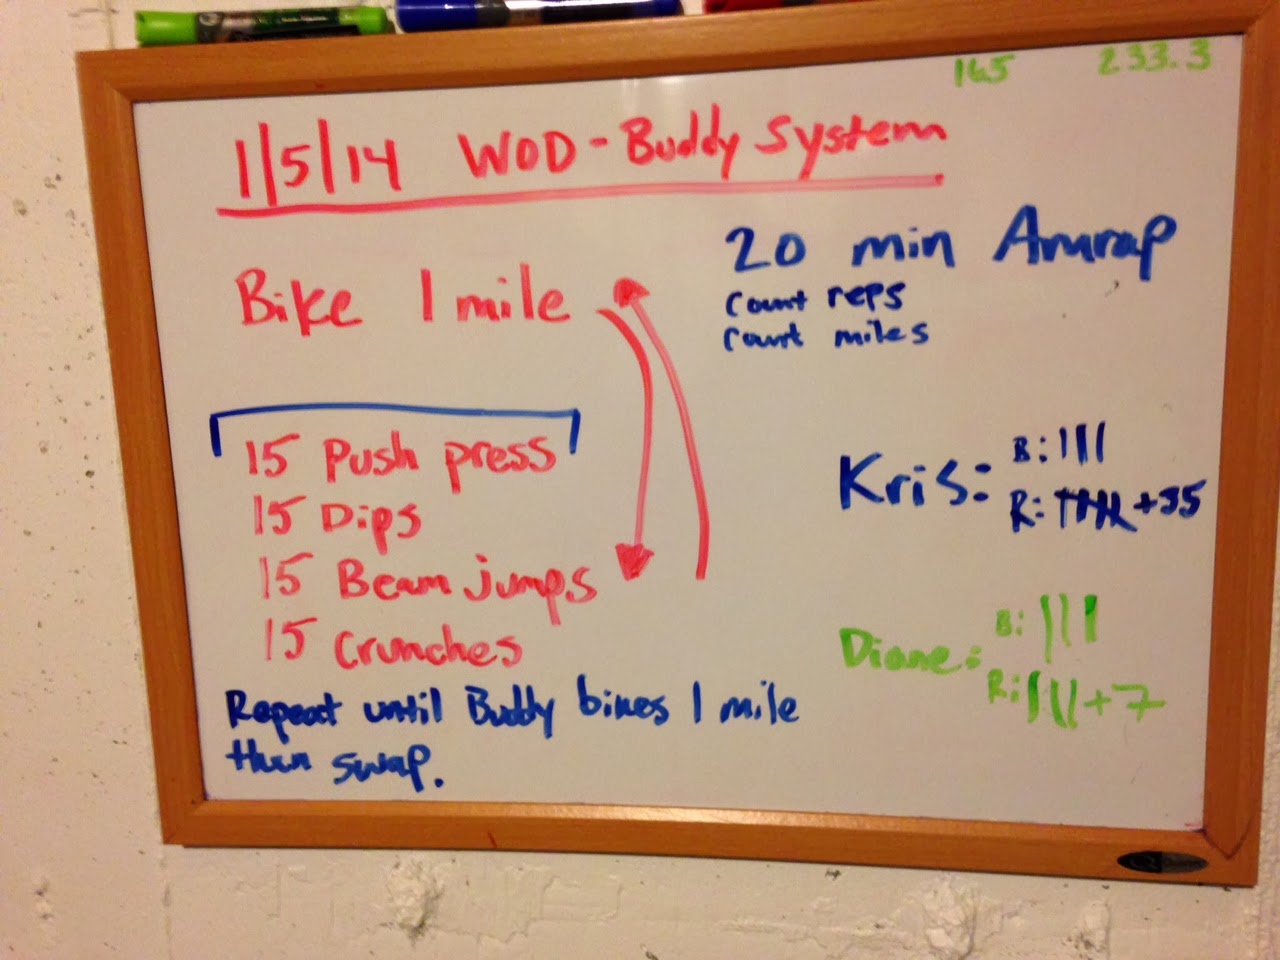 165 233.3
1/5/14 WOD - Buddy System
Bike 1 mile
20 min Amrap
count reps
count miles
15 Push press
15 Dips
15 Beam jumps
15 Crunches
Repeat until Buddy bikes 1 mile
then swap.
Kris: B: |||
R: |||| +35
Diane: B: |||
R: |||| +7